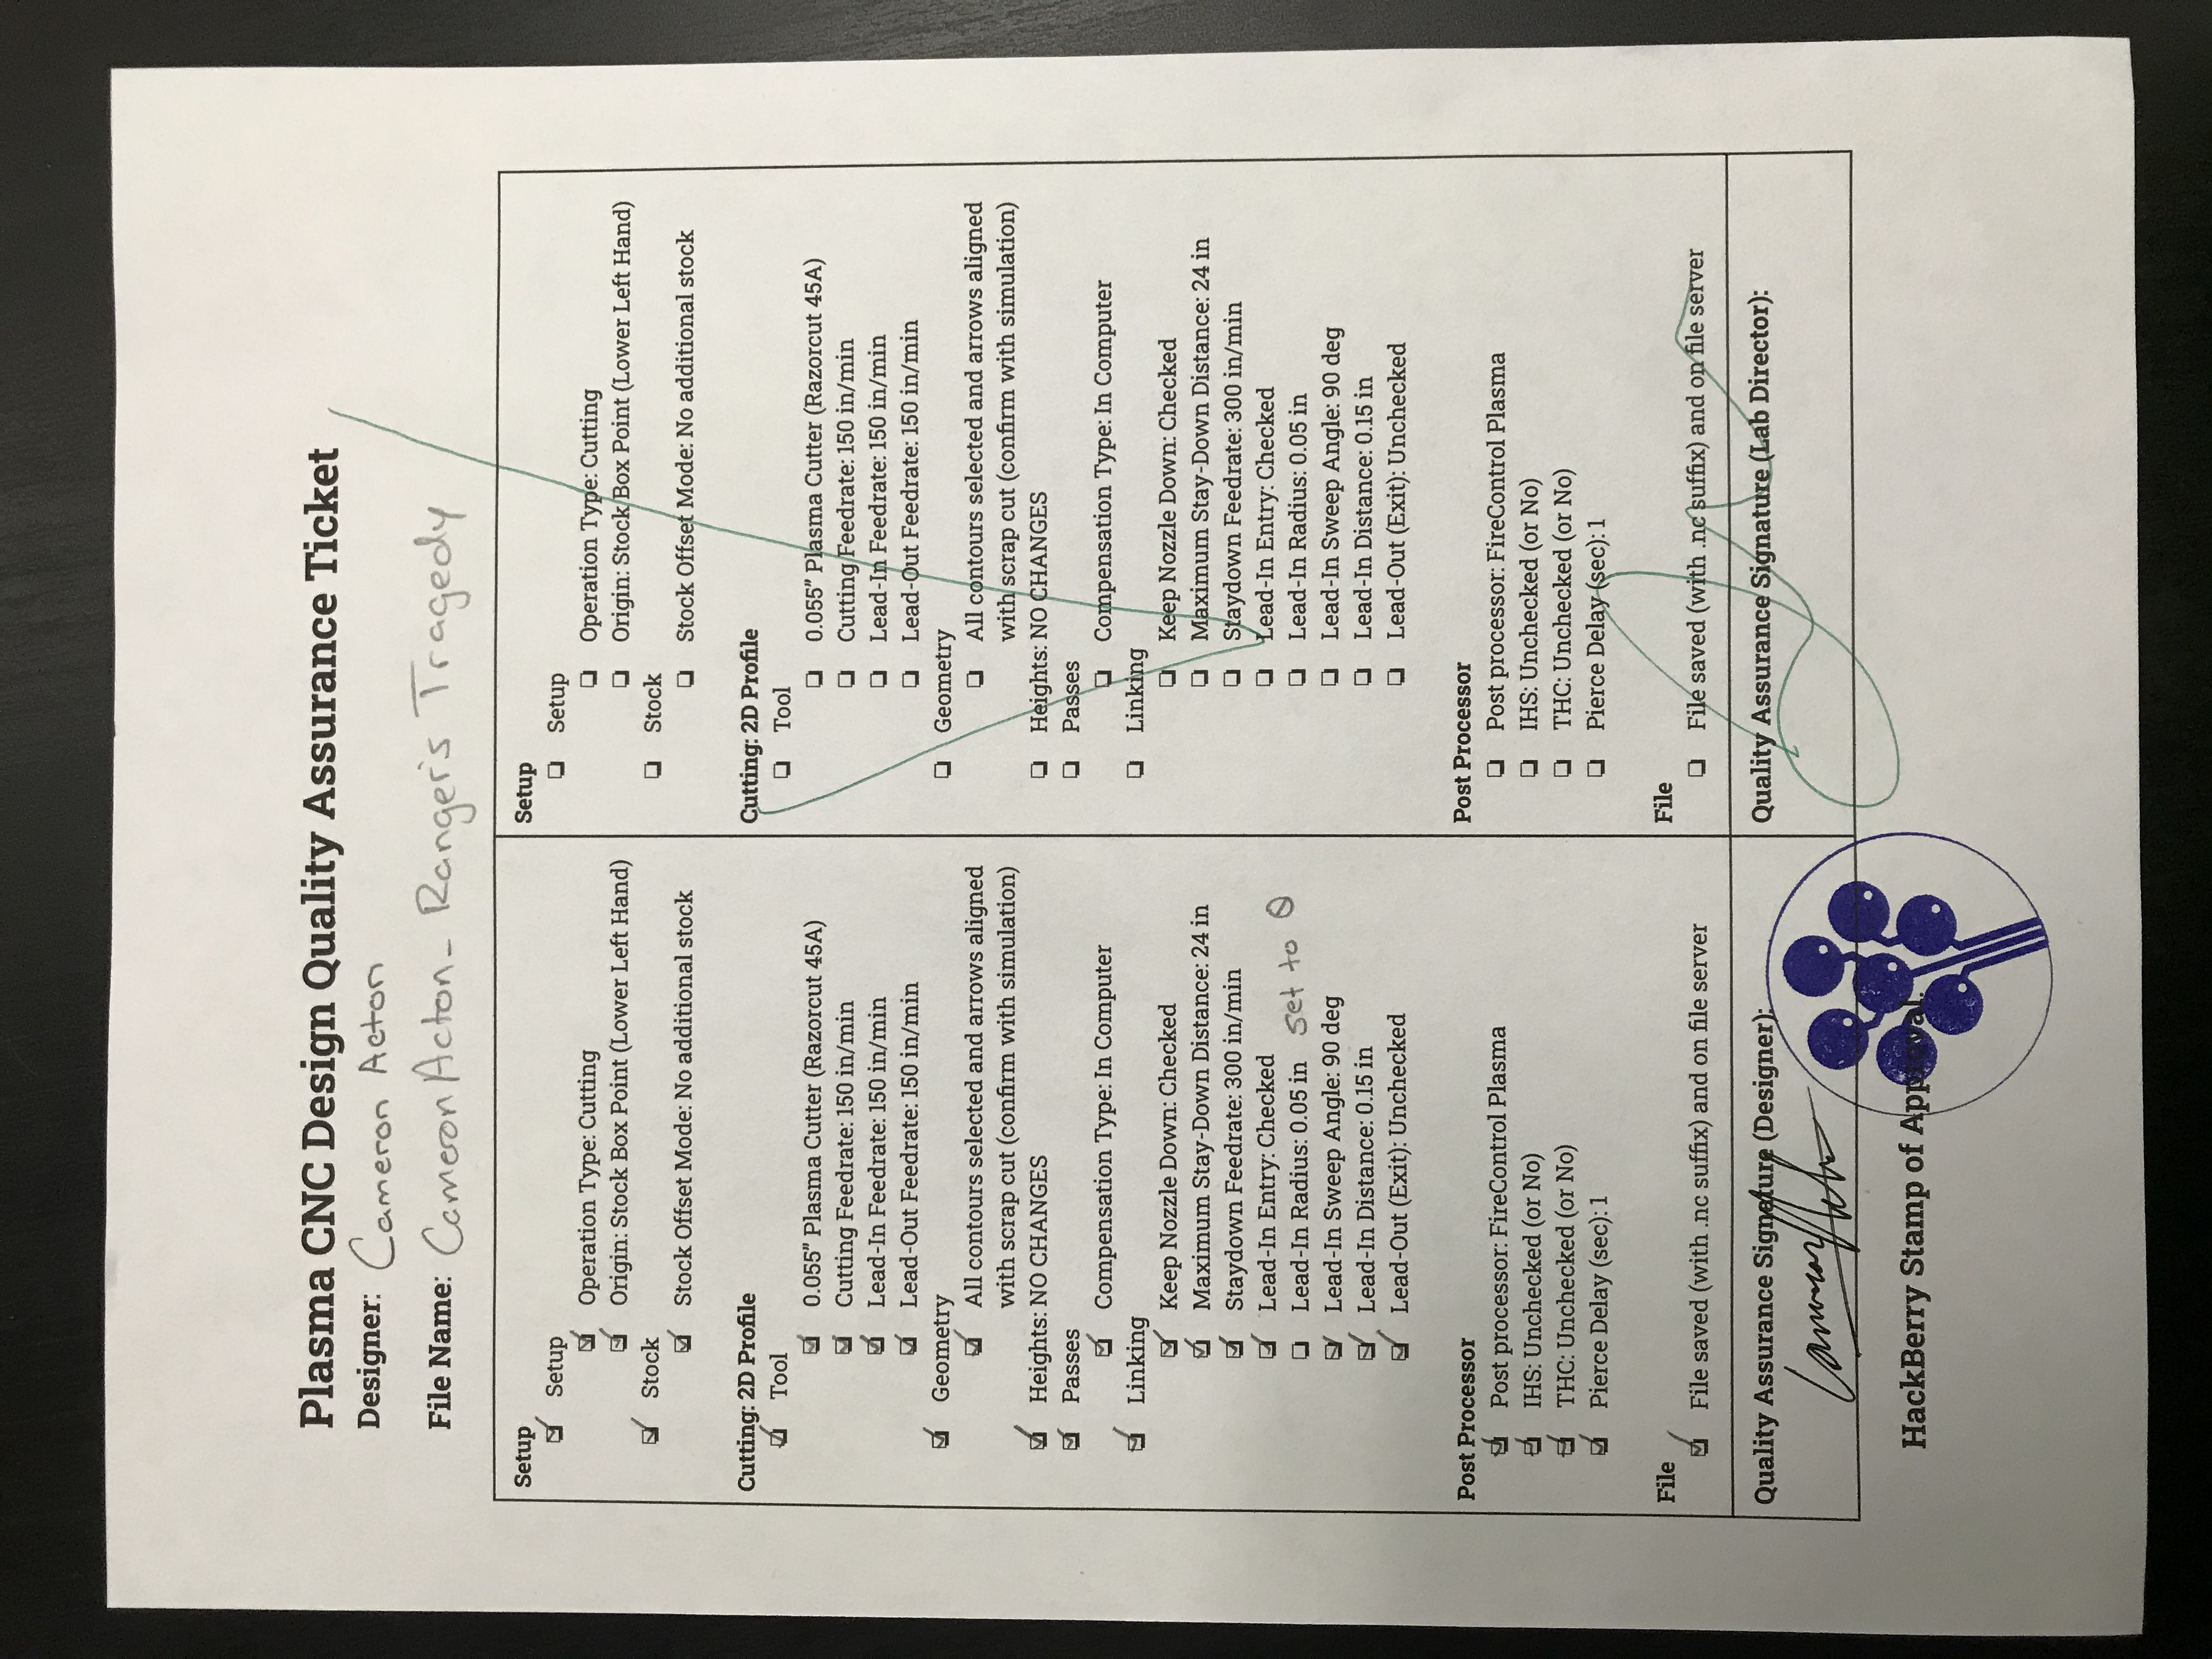 Plasma CNC Design Quality Assurance Ticket
Designer: Cameron Acton
File Name: CameronActon_Ranger's Tragedy
Setup
Setup
Operation Type: Cutting
Origin: Stock Box Point (Lower Left Hand)
Stock
Stock Offset Mode: No additional stock
Cutting: 2D Profile
Tool
0.055” Plasma Cutter (Razorcut 45A)
Cutting Feedrate: 150 in/min
Lead-In Feedrate: 150 in/min
Lead-Out Feedrate: 150 in/min
Geometry
All contours selected and arrows aligned
with scrap cut (confirm with simulation)
Heights: NO CHANGES
Passes
Compensation Type: In Computer
Linking
Keep Nozzle Down: Checked
Maximum Stay-Down Distance: 24 in
Staydown Feedrate: 300 in/min
Lead-In Entry: Checked
Lead-In Radius: 0.05 in set to 0
Lead-In Sweep Angle: 90 deg
Lead-In Distance: 0.15 in
Lead-Out (Exit): Unchecked
Post Processor
Post processor: FireControl Plasma
IHS: Unchecked (or No)
THC: Unchecked (or No)
Pierce Delay (sec): 1
File
File saved (with .nc suffix) and on file server
Quality Assurance Signature (Designer):
Setup
Setup
Operation Type: Cutting
Origin: Stock Box Point (Lower Left Hand)
Stock
Stock Offset Mode: No additional stock
Cutting: 2D Profile
Tool
0.055” Plasma Cutter (Razorcut 45A)
Cutting Feedrate: 150 in/min
Lead-In Feedrate: 150 in/min
Lead-Out Feedrate: 150 in/min
Geometry
All contours selected and arrows aligned
with scrap cut (confirm with simulation)
Heights: NO CHANGES
Passes
Compensation Type: In Computer
Linking
Keep Nozzle Down: Checked
Maximum Stay-Down Distance: 24 in
Staydown Feedrate: 300 in/min
Lead-In Entry: Checked
Lead-In Radius: 0.05 in
Lead-In Sweep Angle: 90 deg
Lead-In Distance: 0.15 in
Lead-Out (Exit): Unchecked
Post Processor
Post processor: FireControl Plasma
IHS: Unchecked (or No)
THC: Unchecked (or No)
Pierce Delay (sec): 1
File
File saved (with .nc suffix) and on file server
Quality Assurance Signature (Lab Director):
HackBerry Stamp of Approval: